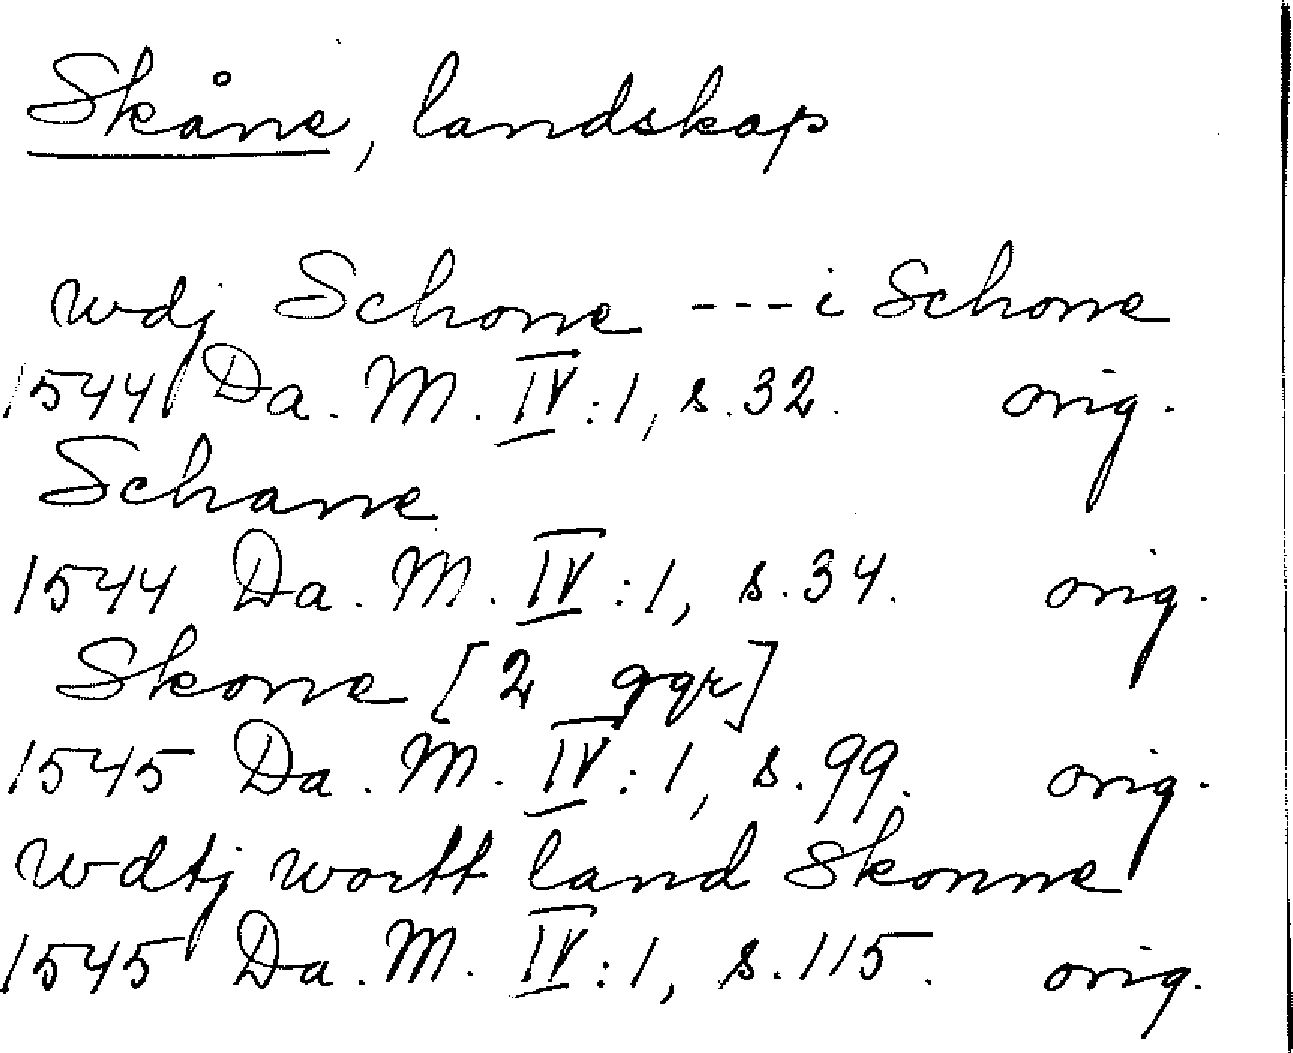 Skåne, landskap
wdj Schone --- i Schone
1544 Da. M. IV:1, s. 32. orig.
Schane
1544 Da. M. IV:1, s. 34. orig.
Skone [2 ggr]
1545 Da. M. IV:1, s. 99. orig.
wdtj wortt land Skonne
1545 Da. M. IV:1, s. 115. orig.